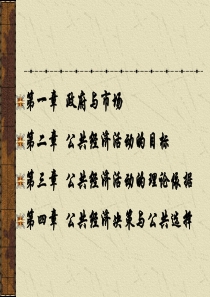 第一章 政府与市场
第二章 公共经济活动的目标
第三章 公共经济活动的理论依据
第四章 公共经济决策与公共选择